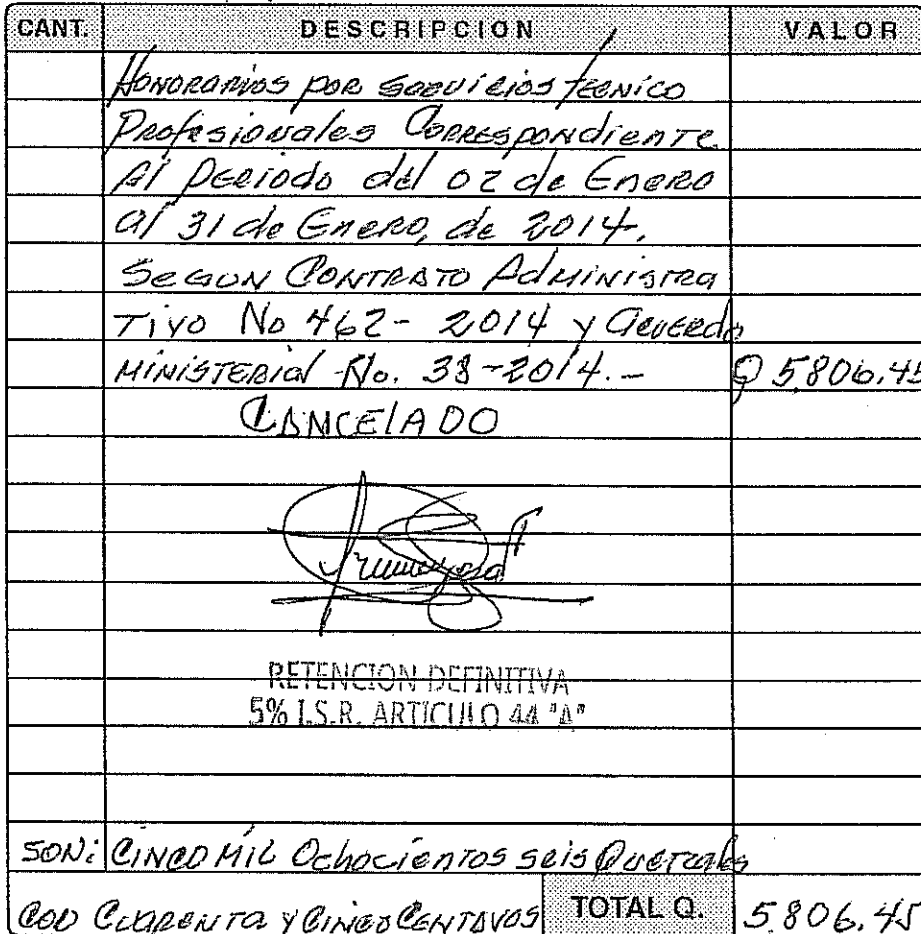 CANT. DESCRIPCION VALOR
Honorarios por servicios tecnico
Profesionales Correspondiente
Al Periodo del 02 de Enero
al 31 de Enero, de 2014.
Segun Contrato Administra
Tivo No 462- 2014 y acuerdo
Ministerial No. 33-2014.- Q 5,806.45
CANCELADO
RETENCION DEFINITIVA
5% I.S.R. ARTICULO 44 "A"
SON: CINCO MIL Ochocientos seis Quetzales
CON CUARENTA Y CINCO CENTAVOS TOTAL Q. 5,806.45